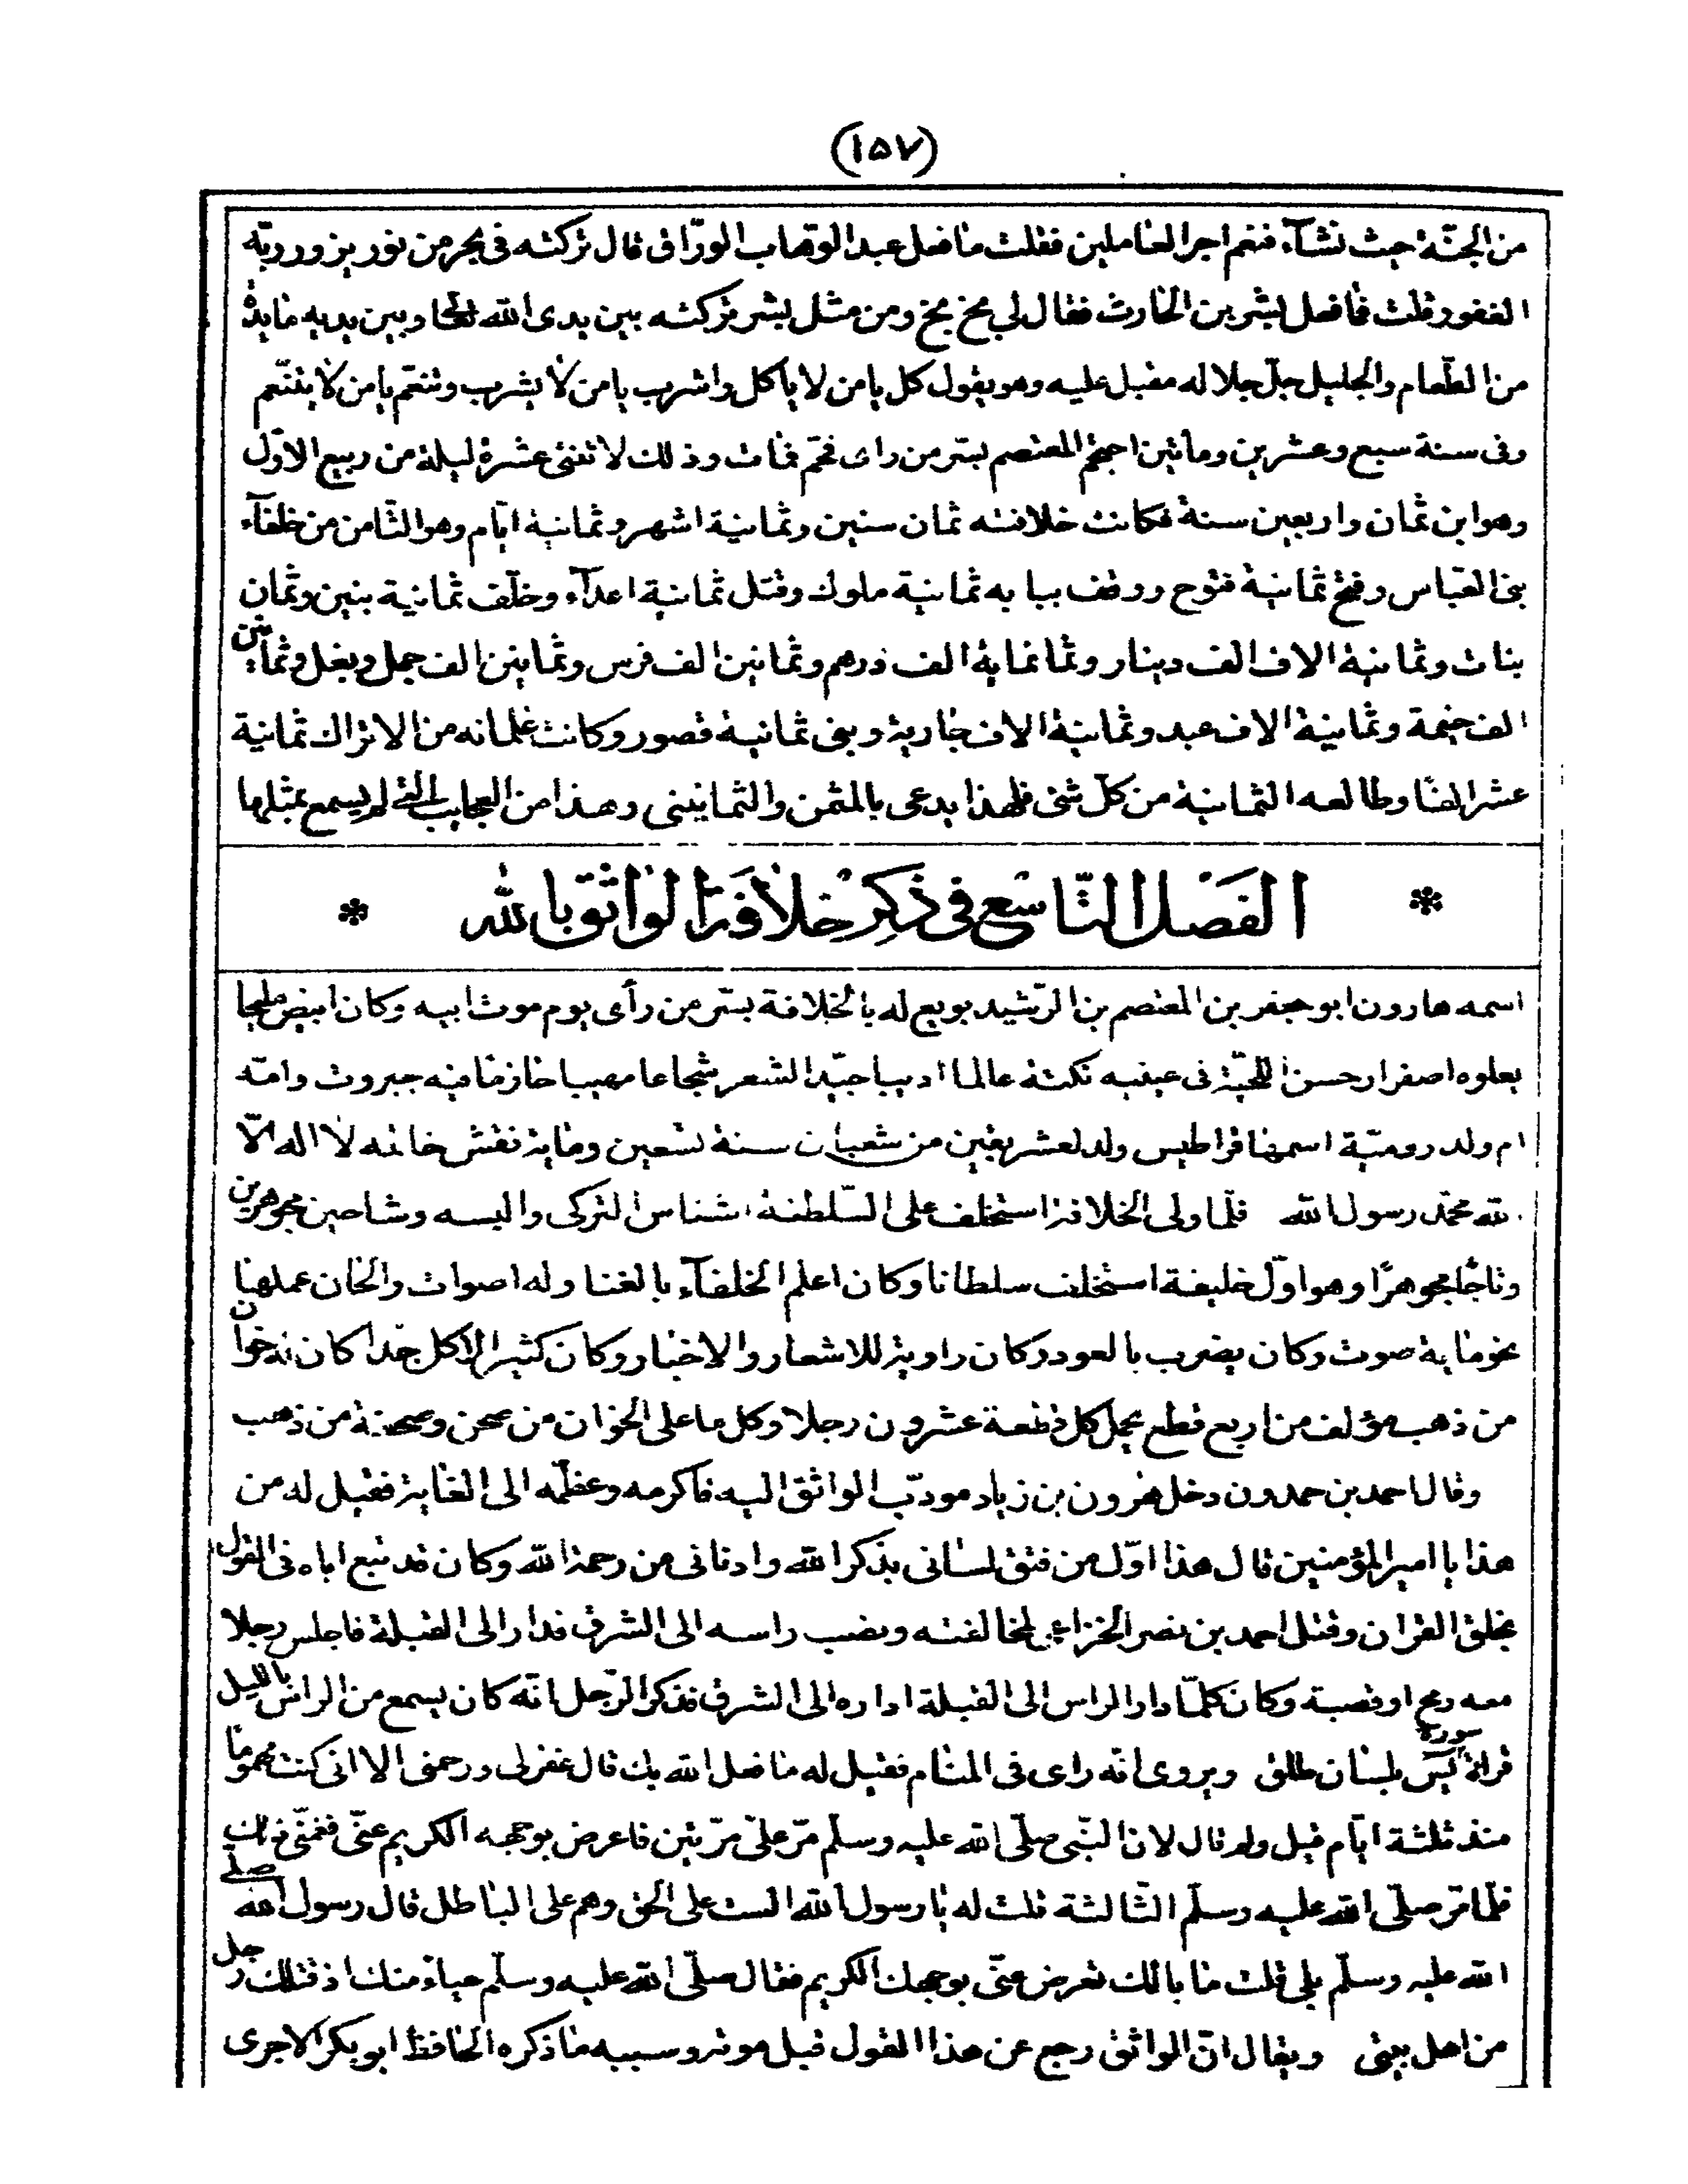 (١٥٧)
من الجنّة حيث نشآء فنعم اجر العاملين فقلت ما فعل عبد الوهّاب الورّاق قال تركته فى بحر من نور يزور ربّه
الغفور قلت فما فعل بشر بن الحارث فقال لى بخ بخ ومن مثل بشر تركته بين يدى الله تعالى وبين يديه مايدة
من الطّعام والجليل جلّ جلاله مقبل عليه وهو يقول كل يا من لا ياكل واشرب يا من لا يشرب وتنعّم يا من لا يتنعّم
وفى سنة سبع وعشرين ومأتين احتجم المعتصم بسرّ من راى فحمّ فمات وذلك لاثنتى عشرة ليلة من ربيع الاوّل
وهو ابن ثمان واربعين سنة فكانت خلافته ثمان سنين وثمانية اشهر وثمانية ايّام وهو الثّامن من خلفآء
بنى العبّاس وفتح ثمانية فتوح ووقف ببابه ثمانية ملوك وقتل ثمانية اعدآء وخلّف ثمانية بنين وثمان
بنات وثمانية الاف الف دينار وثمانماية الف درهم وثمانين الف فرس وثمانين الف جمل وبغل وثمانين
الف خيمة وثمانية الاف عبد وثمانية الاف جارية وبنى ثمانية قصور وكانت غلمانه من الاتراك ثمانية
عشر الفا وطالعه الثمانية من كلّ شئ فلهذا يدعى بالمثمن والثمانينى وهذا من العجايب التى لم يسمع بمثلها
* الفصل التّاسع فى ذكر خلافة الواثق بالله *
اسمه هارون ابو جعفر بن المعتصم بن الرّشيد بويع له بالخلافة بسرّ من رأى يوم موت ابيه وكان ابيض مليحا
يعلوه اصفرار حسن اللحيّة فى عينيه نكتة عالما اديبا جيّد الشعر شجاعا مهيبا حازما فيه جبروت وامّه
ام ولد روميّة اسمها قراطيس ولد لعشر بقين من شعبان سنة تسعين وماية نقش خاتمه لا اله الّا
الله محمّد رسول الله فلمّا ولى الخلافة استخلف على السّلطنة اشناس التركى والبسه وشاحين مجوهرين
وتاجًا مجوهرًا وهو اوّل خليفة استخلف سلطانا وكان اعلم الخلفآء بالغنا وله اصوات والحان عملها
نحو ماية صوت وكان يضرب بالعود وكان راوية للاشعار والاخبار وكان كثير الاكل جدّا كان له خوان
من ذهب مؤلف من اربع قطع يحمل كل قطعة عشرون رجلا وكل ما على الخوان من صحن وصحفة من ذهب
وقال احمد بن حمدون دخل هرون بن زياد مودّب الواثق اليه فاكرمه وعظّمه الى الغاية فقيل له من
هذا يا امير المؤمنين قال هذا اوّل من فتق لسانى بذكر الله وادنانى من رحمة الله وكان قد تبع اباه فى القول
بخلق القران وقتل احمد بن نصر الخزاعى لمخالفته ونصب راسه الى الشرق فدار الى القبلة فاجلس رجلا
معه رمح او قصبة وكان كلّما دار الراس الى القبلة اداره الى الشرق فذكر الرّجل انّه كان يسمع من الراس بالليل
قراءة سورة يس بلسان طلق ويروى انّه راى فى المنام فقيل له ما فعل الله بك قال غفر لى ورحمنى الا انى كنت مهموما
منذ ثلثة ايّام قيل ولم قال لان النّبى صلّى الله عليه وسلّم مرّ علىّ مرّتين فاعرض بوجهه الكريم عنّى فغمّنى ذلك
فلمّا مرّ صلّى الله عليه وسلّم الثّالثة قلت له يا رسول الله الست على الحق وهم على الباطل قال رسول الله صلّى
الله عليه وسلّم بلى قلت ما بالك تعرض عنّى بوجهك الكريم فقال صلّى الله عليه وسلّم حياء منك اذ قتلك رجل
من اهل بيتى ويقال انّ الواثق رجع عن هذا القول قبل موته وسببه ما ذكره الحافظ ابو بكر الاجرى